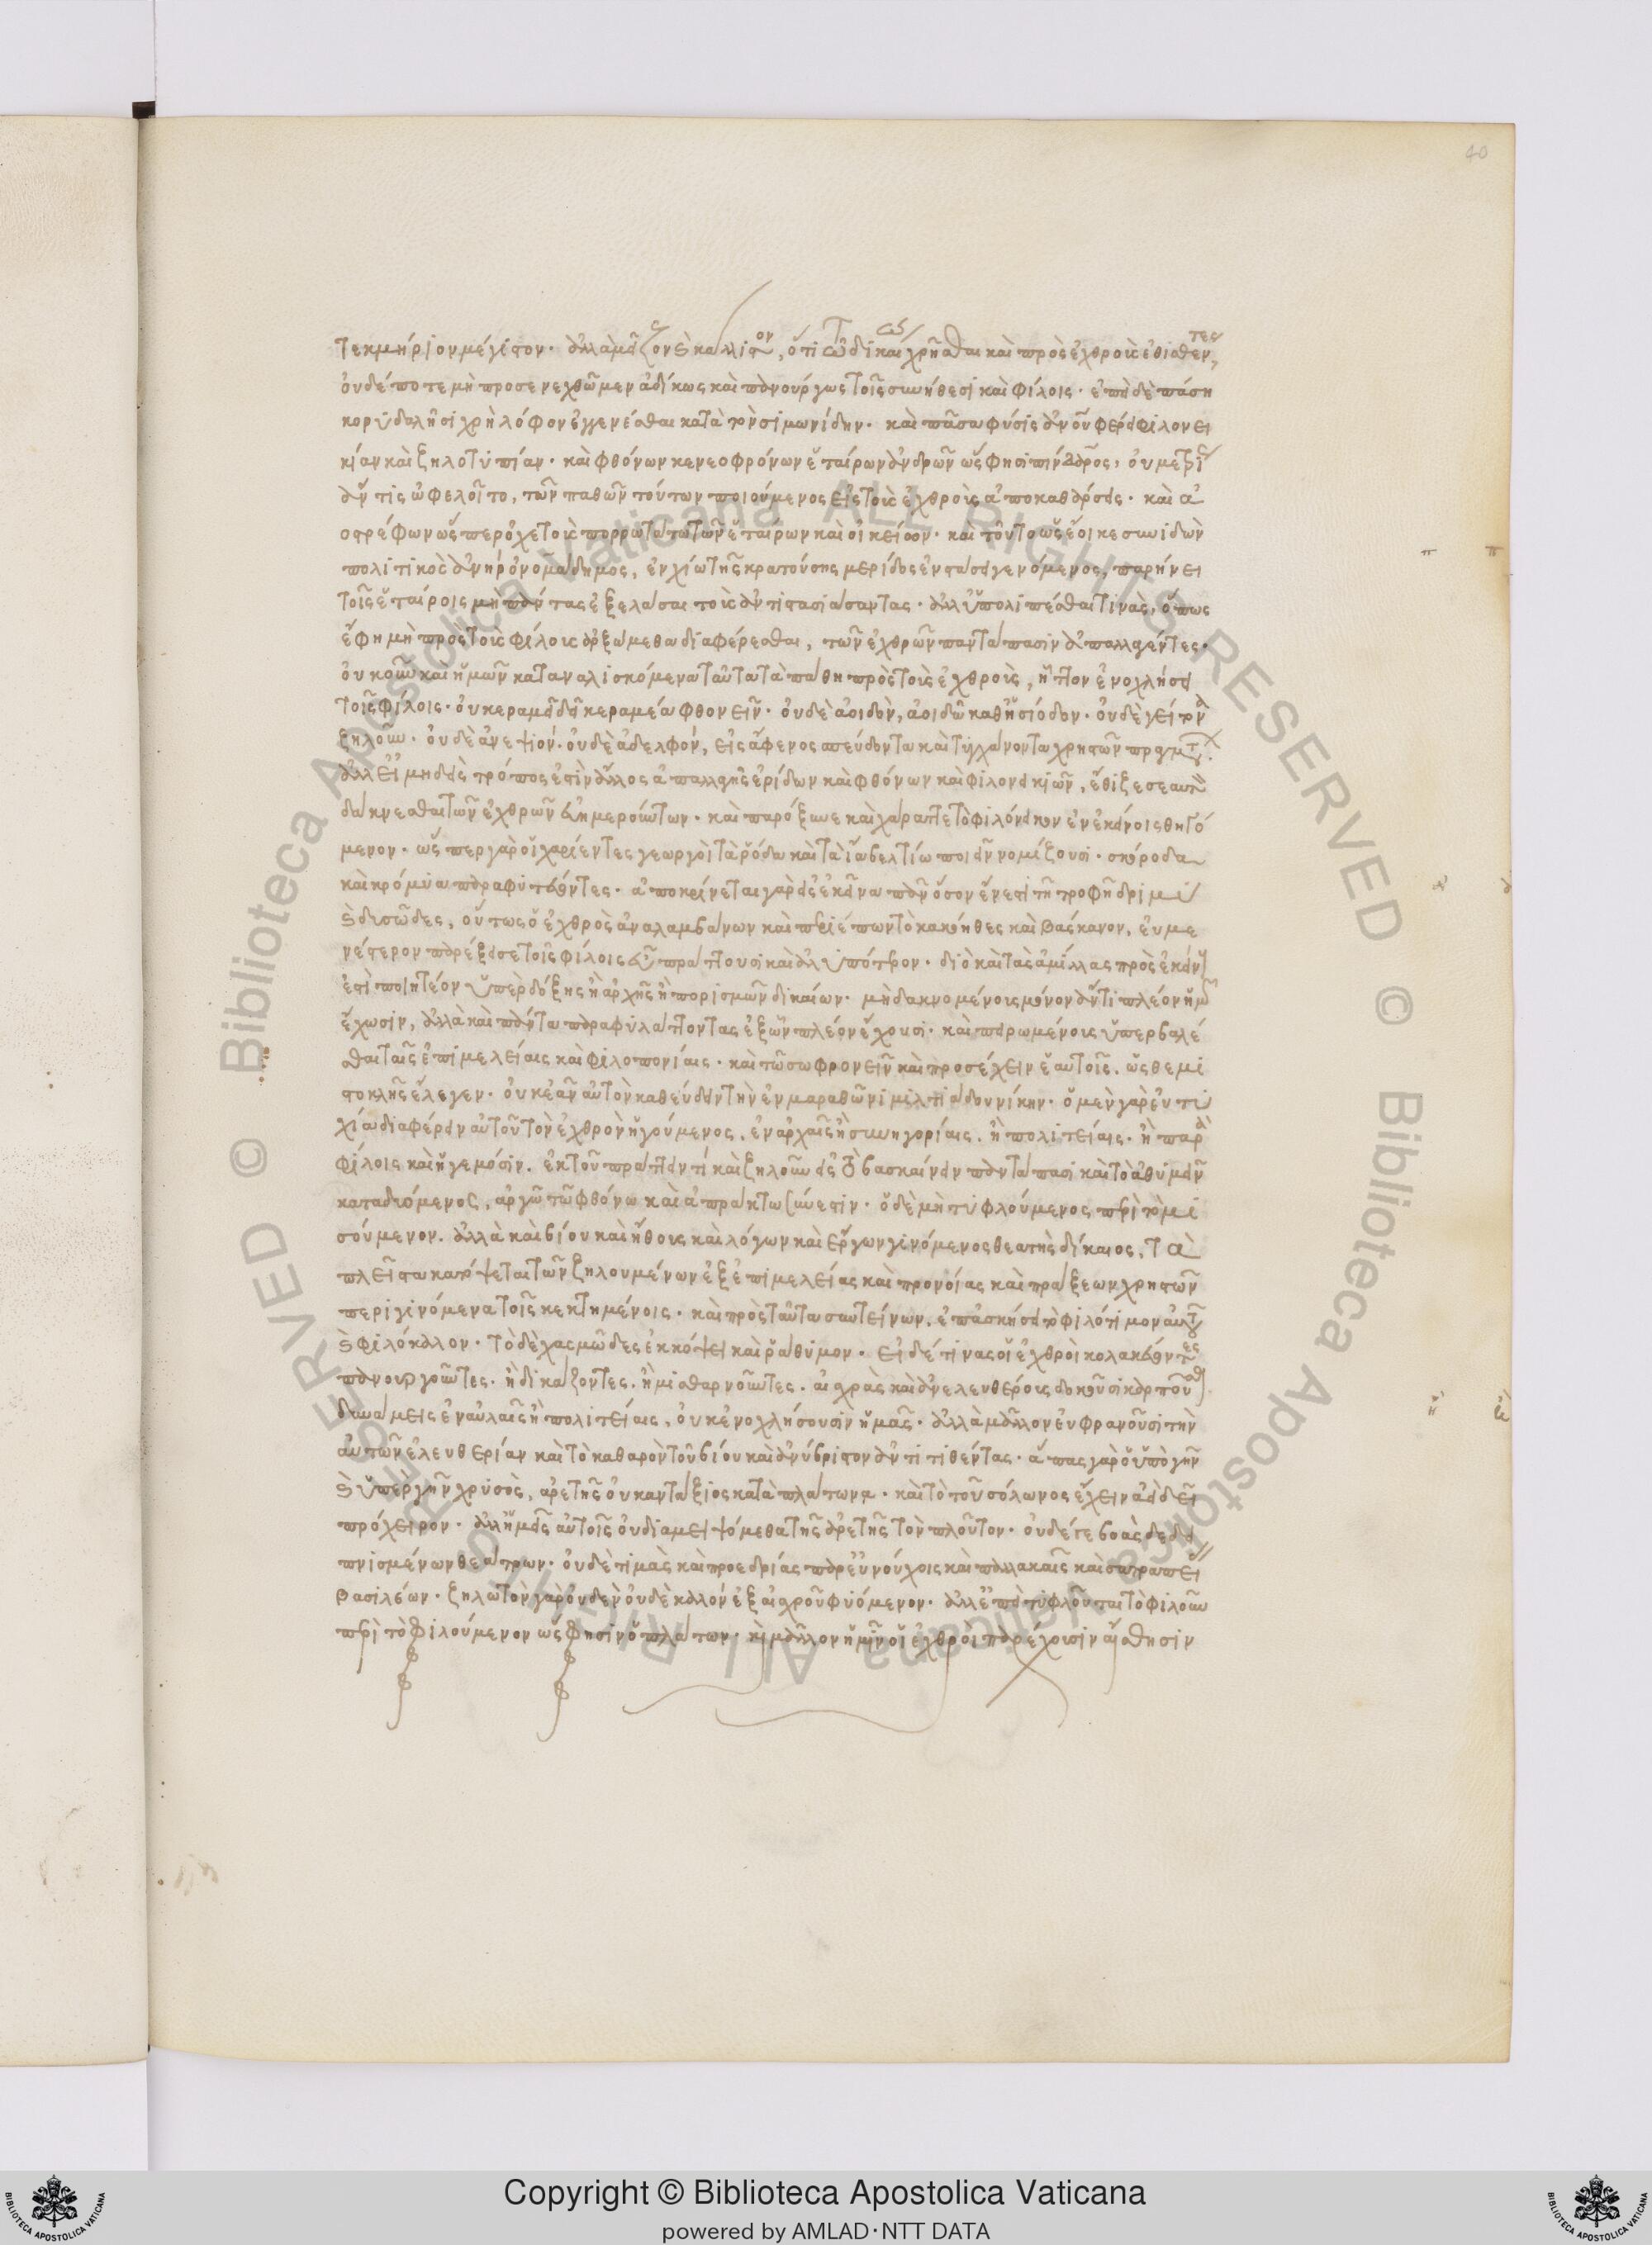 40
τεκμήριον μέγιστον· ἀλλὰ μεῖζον καὶ κάλλιον, ὅτι τῶ δικαίως χρῆσθαι καὶ πρὸς ἐχθροὺς ἐθισθέντες
οὐδέποτε μὴ προσενεχθῶμεν ἀδίκως καὶ πανούργως τοῖς συνήθεσι καὶ φίλοις· ἐπεὶ δὲ πάση
κορυδαλῆσι χρὴ λόφον ἐγγενέσθαι κατὰ τὸν σιμωνίδην· καὶ πᾶσα φύσις ἀνθρώπου φέρει φιλονει
κίαν καὶ ζηλοτυπίαν· καὶ φθόνον κενεοφρόνων ἑταῖρον ἀνδρῶν ὥς φησι πίνδαρος, οὐ μετρίως
ἄν τις ὠφελοῖτο, τῶν παθῶν τούτων ποιούμενος εἰς τοὺς ἐχθροὺς ἀποκαθάρσεις· καὶ ἀ
οστρέφων ὥσπερ ὀχετοὺς πορρωτάτω τῶν ἑταίρων καὶ οἰκείων· καὶ τοῦτο ὡς ἔοικε συνιδὼν
πολιτικὸς ἀνὴρ ὀνομάδημος, ἐν χίω τῆς κρατούσης μερίδος ἐν στάσει γενόμενος, παρήνει
τοῖς ἑταίροις μὴ πάντας ἐξελάσαι τοὺς ἀντιστασιάσαντας· ἀλλ' ὑπολιπέσθαι τινὰς, ὅπως
ἔφη μὴ πρὸς τοὺς φίλους ἀρξώμεθα διαφέρεσθαι, τῶν ἐχθρῶν παντάπασιν ἀπαλλαγέντες·
οὐκοῦν καὶ ἡμῶν καταναλισκόμενα ταῦτα τὰ πάθη πρὸς τοὺς ἐχθροὺς, ἧττον ἐνοχλήσει
τοῖς φίλοις· οὐ κεραμεῖ δεῖ κεραμέα φθονεῖν· οὐδὲ ἀοιδὸν, ἀοιδῶ καθ' ἡσίοδον· οὐδὲ γείτονα
ζηλοῦν· οὐδὲ ἀνεψιόν· οὐδὲ ἀδελφόν, εἰς ἄφενος σπεύδοντα καὶ τυγχάνοντα χρηστῶν πραγμάτων·
ἀλλ' εἰ μηδεὶς τρόπος ἐστὶν ἄλλος ἀπαλλαγῆς ἐρίδων καὶ φθόνων καὶ φιλονεικιῶν, ἔθιζε σεαυτὸν
δάκνεσθαι τῶν ἐχθρῶν εὐημερούντων· καὶ παρόξυνε καὶ χάραττε τὸ φιλόνεικον ἐν ἐκείνοις θηγό
μενον· ὥσπερ γὰρ οἱ χαρίεντες γεωργοὶ τὰ ῥόδα καὶ τὰ ἴα βελτίω ποιεῖν νομίζουσι· σκόροδα
καὶ κρόμυα παραφυτεύοντες· ἀποκρίνεται γὰρ εἰς ἐκεῖνα πᾶν ὅσον ἔνεστι τῆ τροφῆ δριμὺ
καὶ δυσῶδες, οὕτως ὁ ἐχθρὸς ἀναλαμβάνων καὶ περιέπων τὸ κακόηθες καὶ βάσκανον, εὐμε
νέστερον παρέξει σε τοῖς φίλοις εὖ πράττουσι καὶ ἀλυπότερον· διὸ καὶ τὰς ἁμίλλας πρὸς ἐκείνους
ἐστὶ ποιητέον ὑπὲρ δόξης ἢ ἀρχῆς ἢ πορισμῶν δικαίων· μὴ δακνομένοις μόνον ἄν τι πλέον ἡμῶν
ἔχωσιν, ἀλλὰ καὶ πάντα παραφυλάττοντας ἐξ ὧν πλέον ἔχουσι· καὶ πειρωμένοις ὑπερβαλέ
σθαι ταῖς ἐπιμελείαις καὶ φιλοπονίαις· καὶ τῶ σωφρονεῖν καὶ προσέχειν ἑαυτοῖς. ὡς θεμι
στοκλῆς ἔλεγεν· οὐκ ἐᾶν αὐτὸν καθεύδειν τὴν ἐν μαραθῶνι μιλτιάδου νίκην· ὁ μὲν γὰρ εὐτυ
χία διαφέρειν αὐτοῦ τὸν ἐχθρὸν ἡγούμενος. ἐν ἀρχαῖς ἢ συνηγορίαις. ἢ πολιτείαις· ἢ παρὰ
φίλοις καὶ ἡγεμόσιν. ἐκ τοῦ πράττειν τι καὶ ζηλοῦν εἰς τὸ βασκαίνειν παντάπασι καὶ τὸ ἀθυμεῖν
καταδυόμενος, ἀργῶ τῶ φθόνω καὶ ἀπράκτω σύνεστιν· ὁ δὲ μὴ τυφλούμενος περὶ τὸ μι
σούμενον. ἀλλὰ καὶ βίου καὶ ἤθους καὶ λόγων καὶ ἔργων γινόμενος θεατὴς δίκαιος, τὰ
πλεῖστα κατόψεται τῶν ζηλουμένων ἐξ ἐπιμελείας καὶ προνοίας καὶ πράξεων χρηστῶν
περιγινόμενα τοῖς κεκτημένοις· καὶ πρὸς ταῦτα συντείνων, ἐπασκήσει τὸ φιλότιμον αὑτοῦ
καὶ φιλόκαλον· τὸ δὲ χασμῶδες ἐκκόψει καὶ ῥάθυμον· εἰ δέ τινας οἱ ἐχθροὶ κολακεύοντες
πανουργοῦντες· ἢ δικάζοντες. ἢ μισθαρνοῦντες. αἰσχρὰς καὶ ἀνελευθέρους δοκοῦσι καρποῦσθαι
δυνάμεις ἐν αὐλαῖς ἢ πολιτείαις, οὐκ ἐνοχλήσουσιν ἡμᾶς· ἀλλὰ μᾶλλον εὐφρανοῦσι τὴν
αὑτῶν ἐλευθερίαν καὶ τὸ καθαρὸν τοῦ βίου καὶ ἀνύβριστον ἀντιτιθέντας· ἅπας γὰρ ὁ ὑπὸ γῆν
καὶ ὑπὲρ γῆν χρυσὸς, ἀρετῆς οὐκ ἀντάξιος κατὰ πλάτωνα· καὶ τὸ τοῦ σόλωνος ἔχειν ἀεὶ δεῖ
πρόχειρον· ἀλλ' ἡμεῖς αὐτοῖς οὐ διαμειψόμεθα τῆς ἀρετῆς τὸν πλοῦτον· οὐδέ γε βοὰς δεδει
πνισμένων θεάτρων· οὐδὲ τιμὰς καὶ προεδρίας παρ' εὐνούχοις καὶ παλλακαῖς καὶ σατραπεί
βασιλέων· ζηλωτὸν γὰρ οὐδὲν οὐδὲ καλὸν ἐξ αἰσχροῦ φυόμενον· ἀλλ' ἐπεὶ τυφλοῦται τὸ φιλοῦν
περὶ τὸ φιλούμενον ὥς φησιν ὁ πλάτων· καὶ μᾶλλον ἡμῖν οἱ ἐχθροὶ παρέχουσιν αἴσθησιν
Copyright © Biblioteca Apostolica Vaticana
powered by AMLAD·NTT DATA